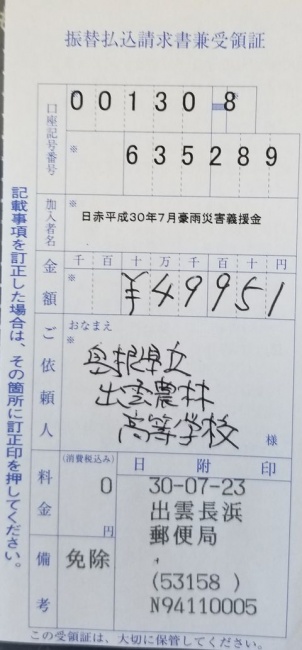 振替払込請求書兼受領証
口座記号番号
※
00130 8
※
635289
加入者名
※
日赤平成30年7月豪雨災害義援金
金額
千 百 十 万 千 百 十 円
※
¥49951
ご依頼人
おなまえ
※
島根県立
出雲農林
高等学校
様
料金
(消費税込み)
0
円
備考
免除
日 附 印
30-07-23
出雲長浜
郵便局
(53158 )
N94110005
記載事項を訂正した場合は、その箇所に訂正印を押してください。
この受領証は、大切に保管してください。